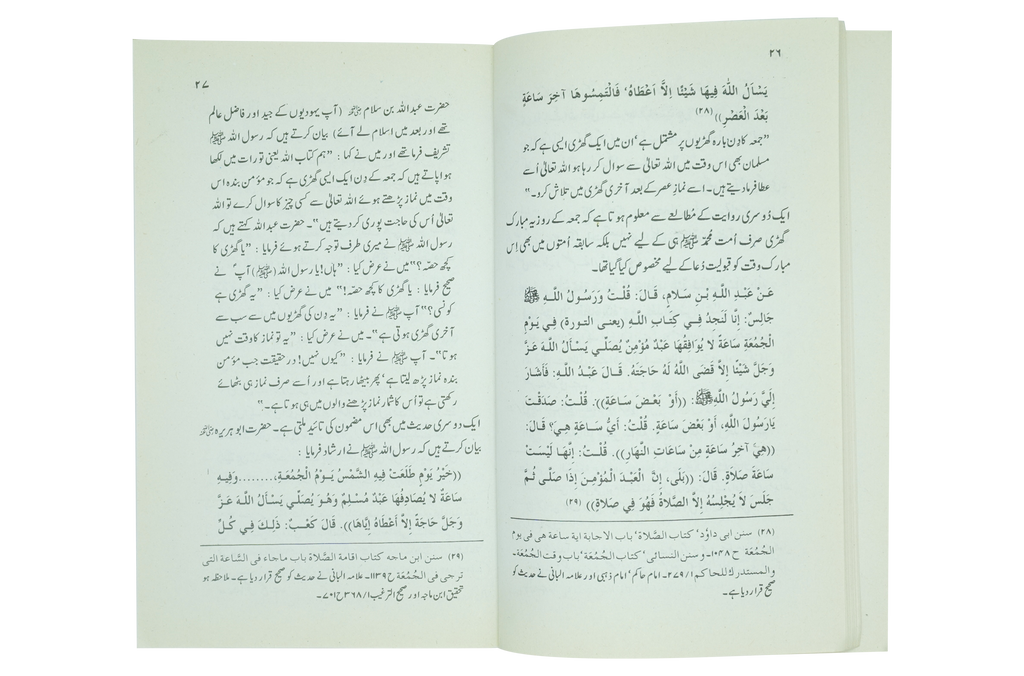 ۲۶
يَسْأَلُ اللّٰهَ فِيهَا شَيْئًا اِلاَّ اَعْطَاهُ‘ فَالْتَمِسُوهَا آخِرَ سَاعَةٍ
بَعْدَ الْعَصْرِ)) (۲۸)
”جمعہ کا دِن بارہ گھڑیوں پر مشتمل ہے‘ ان میں ایک گھڑی ایسی ہے کہ جو
مسلمان بھی اس وقت میں اللہ تعالیٰ سے سوال کر رہا ہو اللہ تعالیٰ اُسے
عطا فرما دیتے ہیں۔ اسے نمازِ عصر کے بعد آخری گھڑی میں تلاش کرو۔“
ایک دُوسری روایت کے مُطالعے سے معلوم ہوتا ہے کہ جمعہ کے روز یہ مبارک
گھڑی صرف اُمت محمد ﷺ ہی کے لیے نہیں بلکہ سابقہ اُمتوں میں بھی اِس
مبارک وقت کو قبولیت دُعا کے لیے مخصوص کیا گیا تھا۔
عَنْ عَبْدِ اللَّهِ بْنِ سَلاَمٍ، قَالَ: قُلْتُ وَرَسُولُ اللَّهِ ﷺ
جَالِسٌ: إِنَّا لَنَجِدُ فِي كِتَابِ اللَّهِ (يعنى التورة) فِي يَوْمِ
الْجُمُعَةِ سَاعَةً لاَ يُوَافِقُهَا عَبْدٌ مُؤْمِنٌ يُصَلِّي يَسْأَلُ اللَّهَ عَزَّ
وَجَلَّ شَيْئًا إِلاَّ قَضَى اللَّهُ لَهُ حَاجَتَهُ. قَالَ عَبْدُ اللَّهِ: فَأَشَارَ
إِلَيَّ رَسُولُ اللَّهِ ﷺ: ((أَوْ بَعْضَ سَاعَةٍ)). قُلْتُ: صَدَقْتَ
يَارَسُولَ اللَّهِ، أَوْ بَعْضَ سَاعَةٍ. قُلْتُ: أَيُّ سَاعَةٍ هِيَ؟ قَالَ:
((هِيَ آخِرُ سَاعَةٍ مِنْ سَاعَاتِ النَّهَارِ)). قُلْتُ: إِنَّهَا لَيْسَتْ
سَاعَةَ صَلاَةٍ. قَالَ: ((بَلَى، إِنَّ الْعَبْدَ الْمُؤْمِنَ إِذَا صَلَّى ثُمَّ
جَلَسَ لاَ يُجْلِسُهُ إِلاَّ الصَّلاَةُ فَهُوَ فِي صَلاَةٍ)) (۲۹)
(۲۸) سنن ابی داؤد‘ کتاب الصلاة‘ باب الاجابة اية ساعة هی فی یوم
الجُمُعَة ح ۱۰۴۸۔ و سنن النسائی‘ کتاب الجُمُعَة‘ باب وقت الجُمُعَة۔
والمستدرك للحاكم ۱/۲۷۹۔ امام حاکم‘ امام ذہبی اور علامہ البانی نے حدیث کو
صحیح قرار دیا ہے۔
۲۷
حضرت عبداللہ بن سلام ؓ (آپ یہودیوں کے جید اور فاضل عالم
تھے اور بعد میں اسلام لے آئے) بیان کرتے ہیں کہ رسول اللہ ﷺ
تشریف فرما تھے اور میں نے کہا : ”ہم کتاب اللہ یعنی تورات میں لکھا
ہوا پاتے ہیں کہ جمعہ کے دِن ایک ایسی گھڑی ہے کہ جو مؤمن بندہ اس
وقت میں نماز پڑھتے ہوئے اللہ تعالیٰ سے کسی چیز کا سوال کرے تو اللہ
تعالیٰ اُس کی حاجت پوری کر دیتے ہیں“۔ حضرت عبداللہ کہتے ہیں کہ
رسول اللہ ﷺ نے میری طرف توجہ کرتے ہوئے فرمایا : ”یا گھڑی کا
کچھ حصّہ؟“ میں نے عرض کیا : ”ہاں! یا رسول اللہ (ﷺ) آپؐ نے
صحیح فرمایا : یا گھڑی کا کچھ حصّہ!“ میں نے عرض کیا : ”یہ گھڑی ہے
کونسی؟“ آپ ﷺ نے فرمایا : ”یہ دِن کی گھڑیوں میں سے سب سے
آخری گھڑی ہوتی ہے“۔ میں نے عرض کیا : ”یہ تو نماز کا وقت نہیں
ہوتا“۔ آپ ﷺ نے فرمایا : ”کیوں نہیں! در حقیقت جب مؤمن
بندہ نماز پڑھ لیتا ہے‘ پھر بیٹھا رہتا ہے اور اُسے صرف نماز ہی بٹھائے
رکھتی ہے تو اُس کا شمار نماز پڑھنے والوں میں ہی ہوتا ہے۔“
ایک دوسری حدیث میں بھی اس مضمون کی تائید ملتی ہے۔ حضرت ابو ہریرہ ؓ
بیان کرتے ہیں کہ رسول اللہ ﷺ نے ارشاد فرمایا :
((خَيْرُ يَوْمٍ طَلَعَتْ فِيهِ الشَّمْسُ يَوْمُ الْجُمُعَةِ،........وَفِيهِ
سَاعَةٌ لاَ يُصَادِفُهَا عَبْدٌ مُسْلِمٌ وَهُوَ يُصَلِّي يَسْأَلُ اللَّهَ عَزَّ
وَجَلَّ حَاجَةً إِلاَّ أَعْطَاهُ إِيَّاهَا)). قَالَ كَعْبٌ: ذَلِكَ فِي كُلِّ
(۲۹) سنن ابن ماجه كتاب اقامة الصَّلاة باب ماجاء فی السَّاعة التى
ترجى فى الجُمُعَة ح ۱۱۳۹۔ علامہ البانی نے حدیث کو صحیح قرار دیا ہے۔ ملاحظہ ہو
تحقیق ابن ماجہ اور صحیح الترغیب ۱/۳۶۸ ح ۷۰۱۔